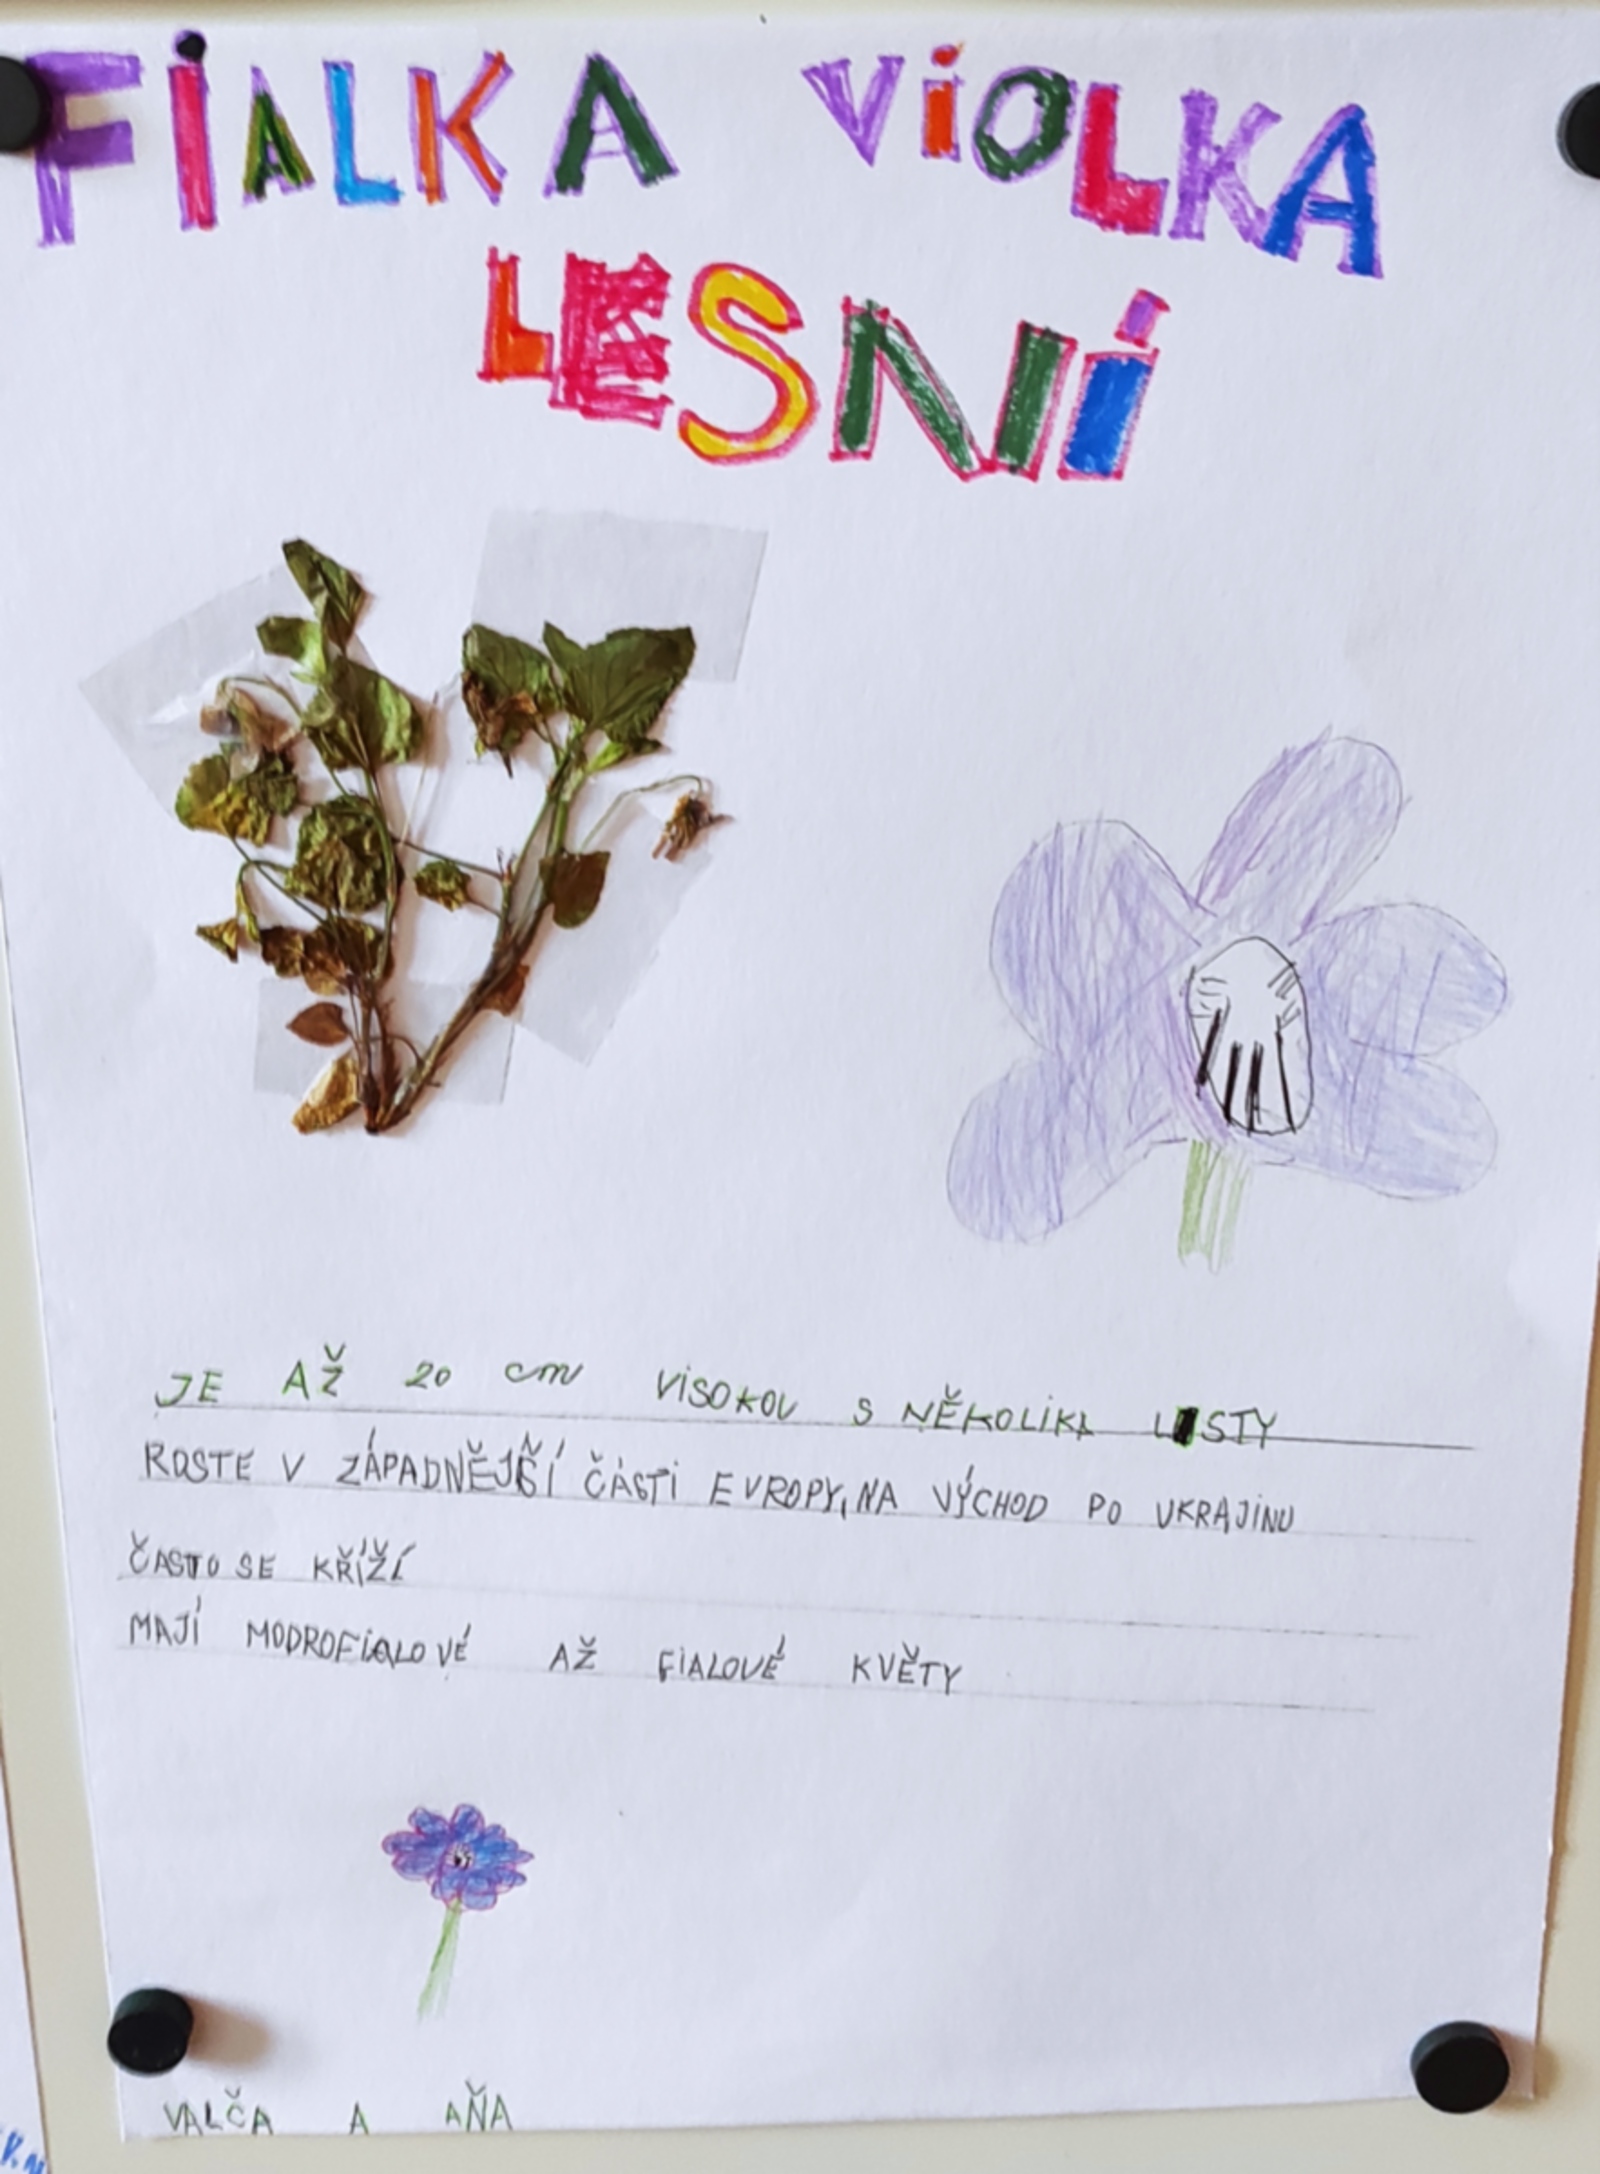 FIALKA VIOLKA
LESNÍ
JE AŽ 20 cm VISOKOU S NĚKOLIKA LISTY
ROSTE V ZÁPADNĚJŠÍ ČÁSTI EVROPY, NA VÝCHOD PO UKRAJINU
ČASTO SE KŘÍŽÍ
MAJÍ MODROFIALOVÉ AŽ FIALOVÉ KVĚTY
VALČA A AŇA